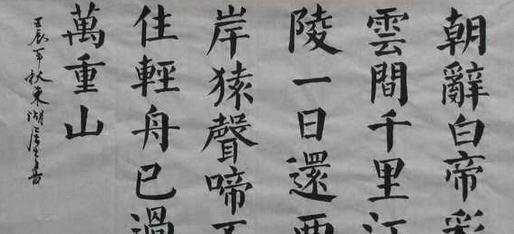 朝辭白帝彩
雲間千里江
陵一日還兩
岸猿聲啼不
住輕舟已過
萬重山
壬辰年秋東湖